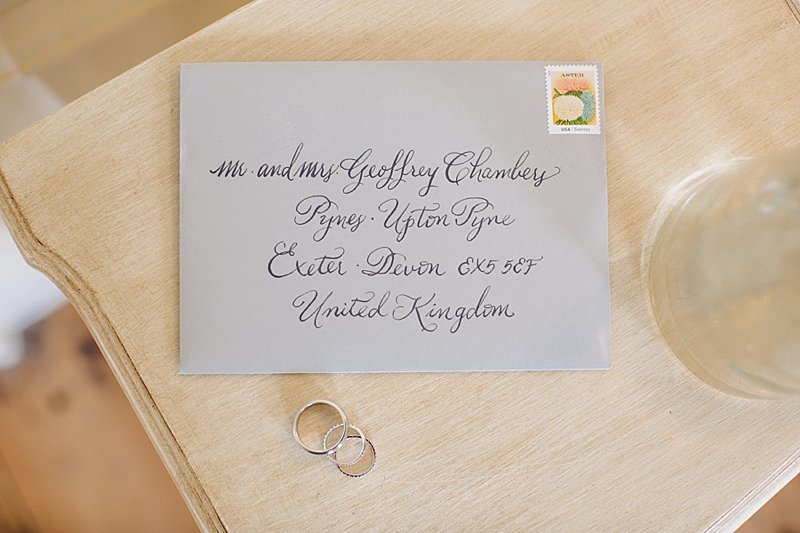 ASTER
USA Forever
Mr. and Mrs. Geoffrey Chambers
Pynes · Upton Pyne
Exeter · Devon EX5 5EF
United Kingdom